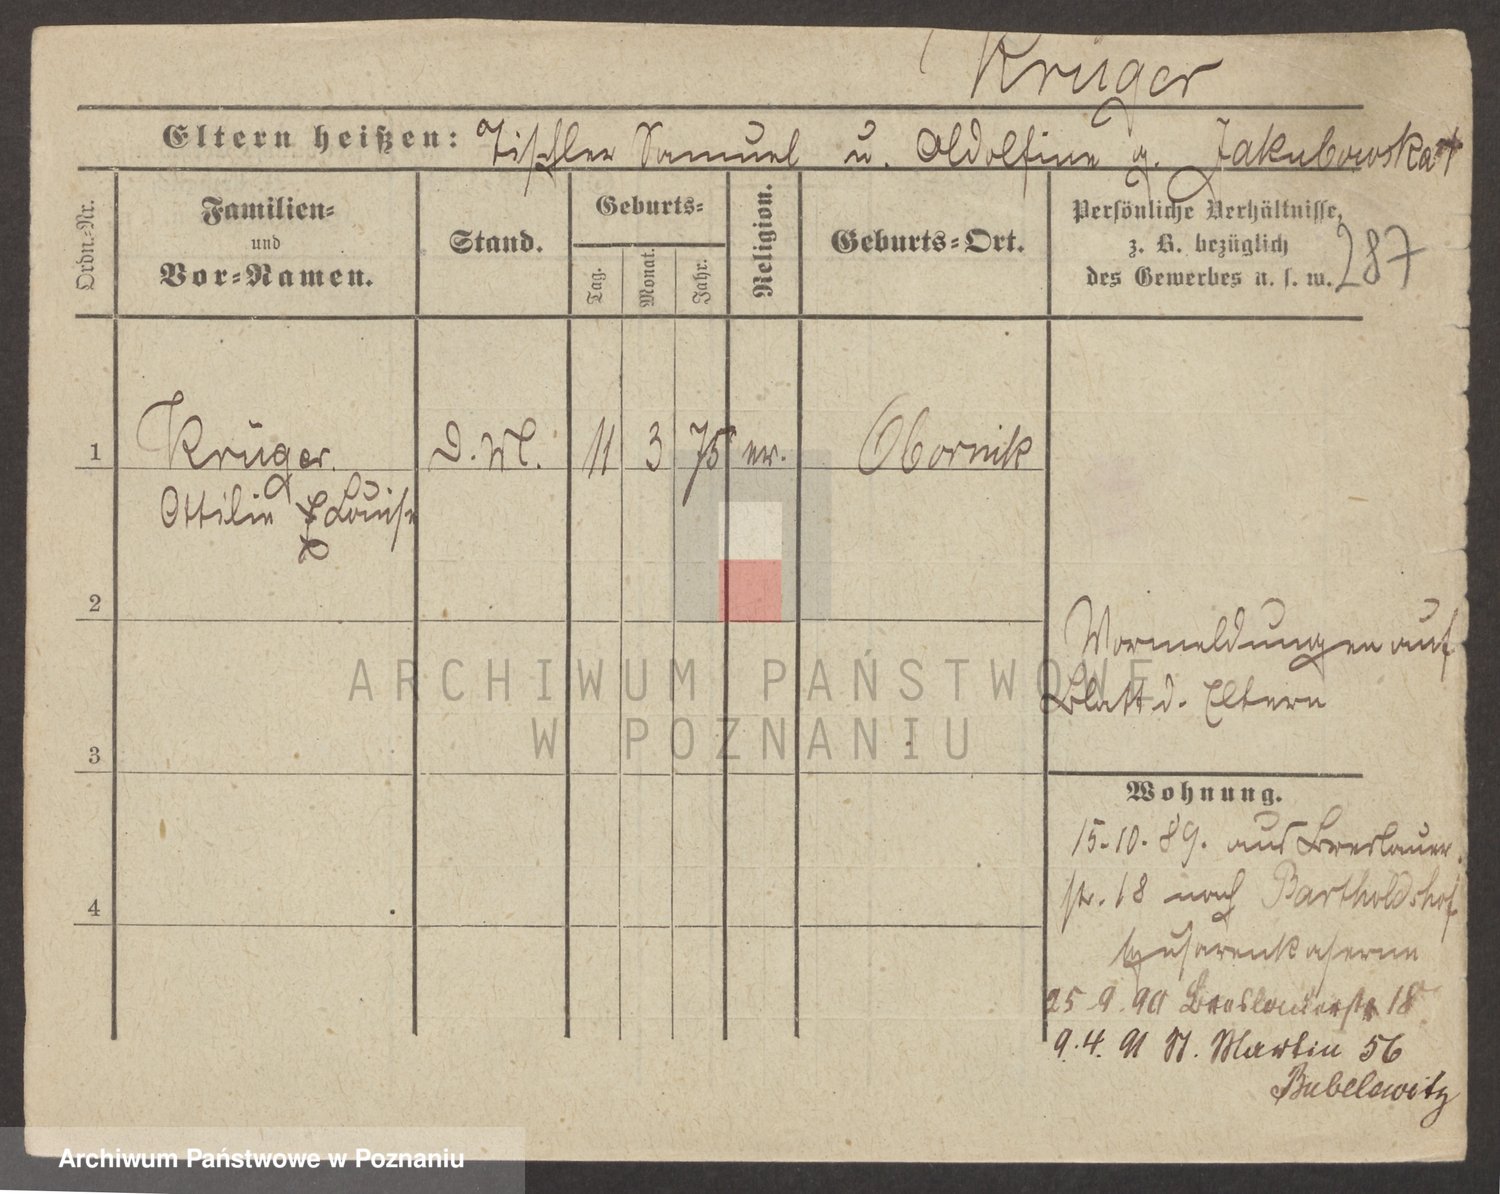 Krüger
Eltern heißen: Tischler Samuel u. Adolfine g. Jakubowska
Ordn.-Nr.
Familien-
und
Vor-Namen.
Stand.
Geburts-
Tag.
Monat.
Jahr.
Religion.
Geburts-Ort.
Persönliche Verhältnisse,
z. B. bezüglich
des Gewerbes u. s. w.
287
1 Krüger. D. M. 11 3 75 ev. Obornik
Ottilie Louise
2
Vormeldungen auf
Blatt d. Eltern
ARCHIWUM PAŃSTWOWE
W POZNANIU
3
Wohnung.
15.10.89. aus Breslauer
str. 18 nach Bartholdshof
Husarenkaserne
4
25.9.90 Breslauerstr 18
9.4.91 St. Martin 56
Bubelowitz
Archiwum Państwowe w Poznaniu